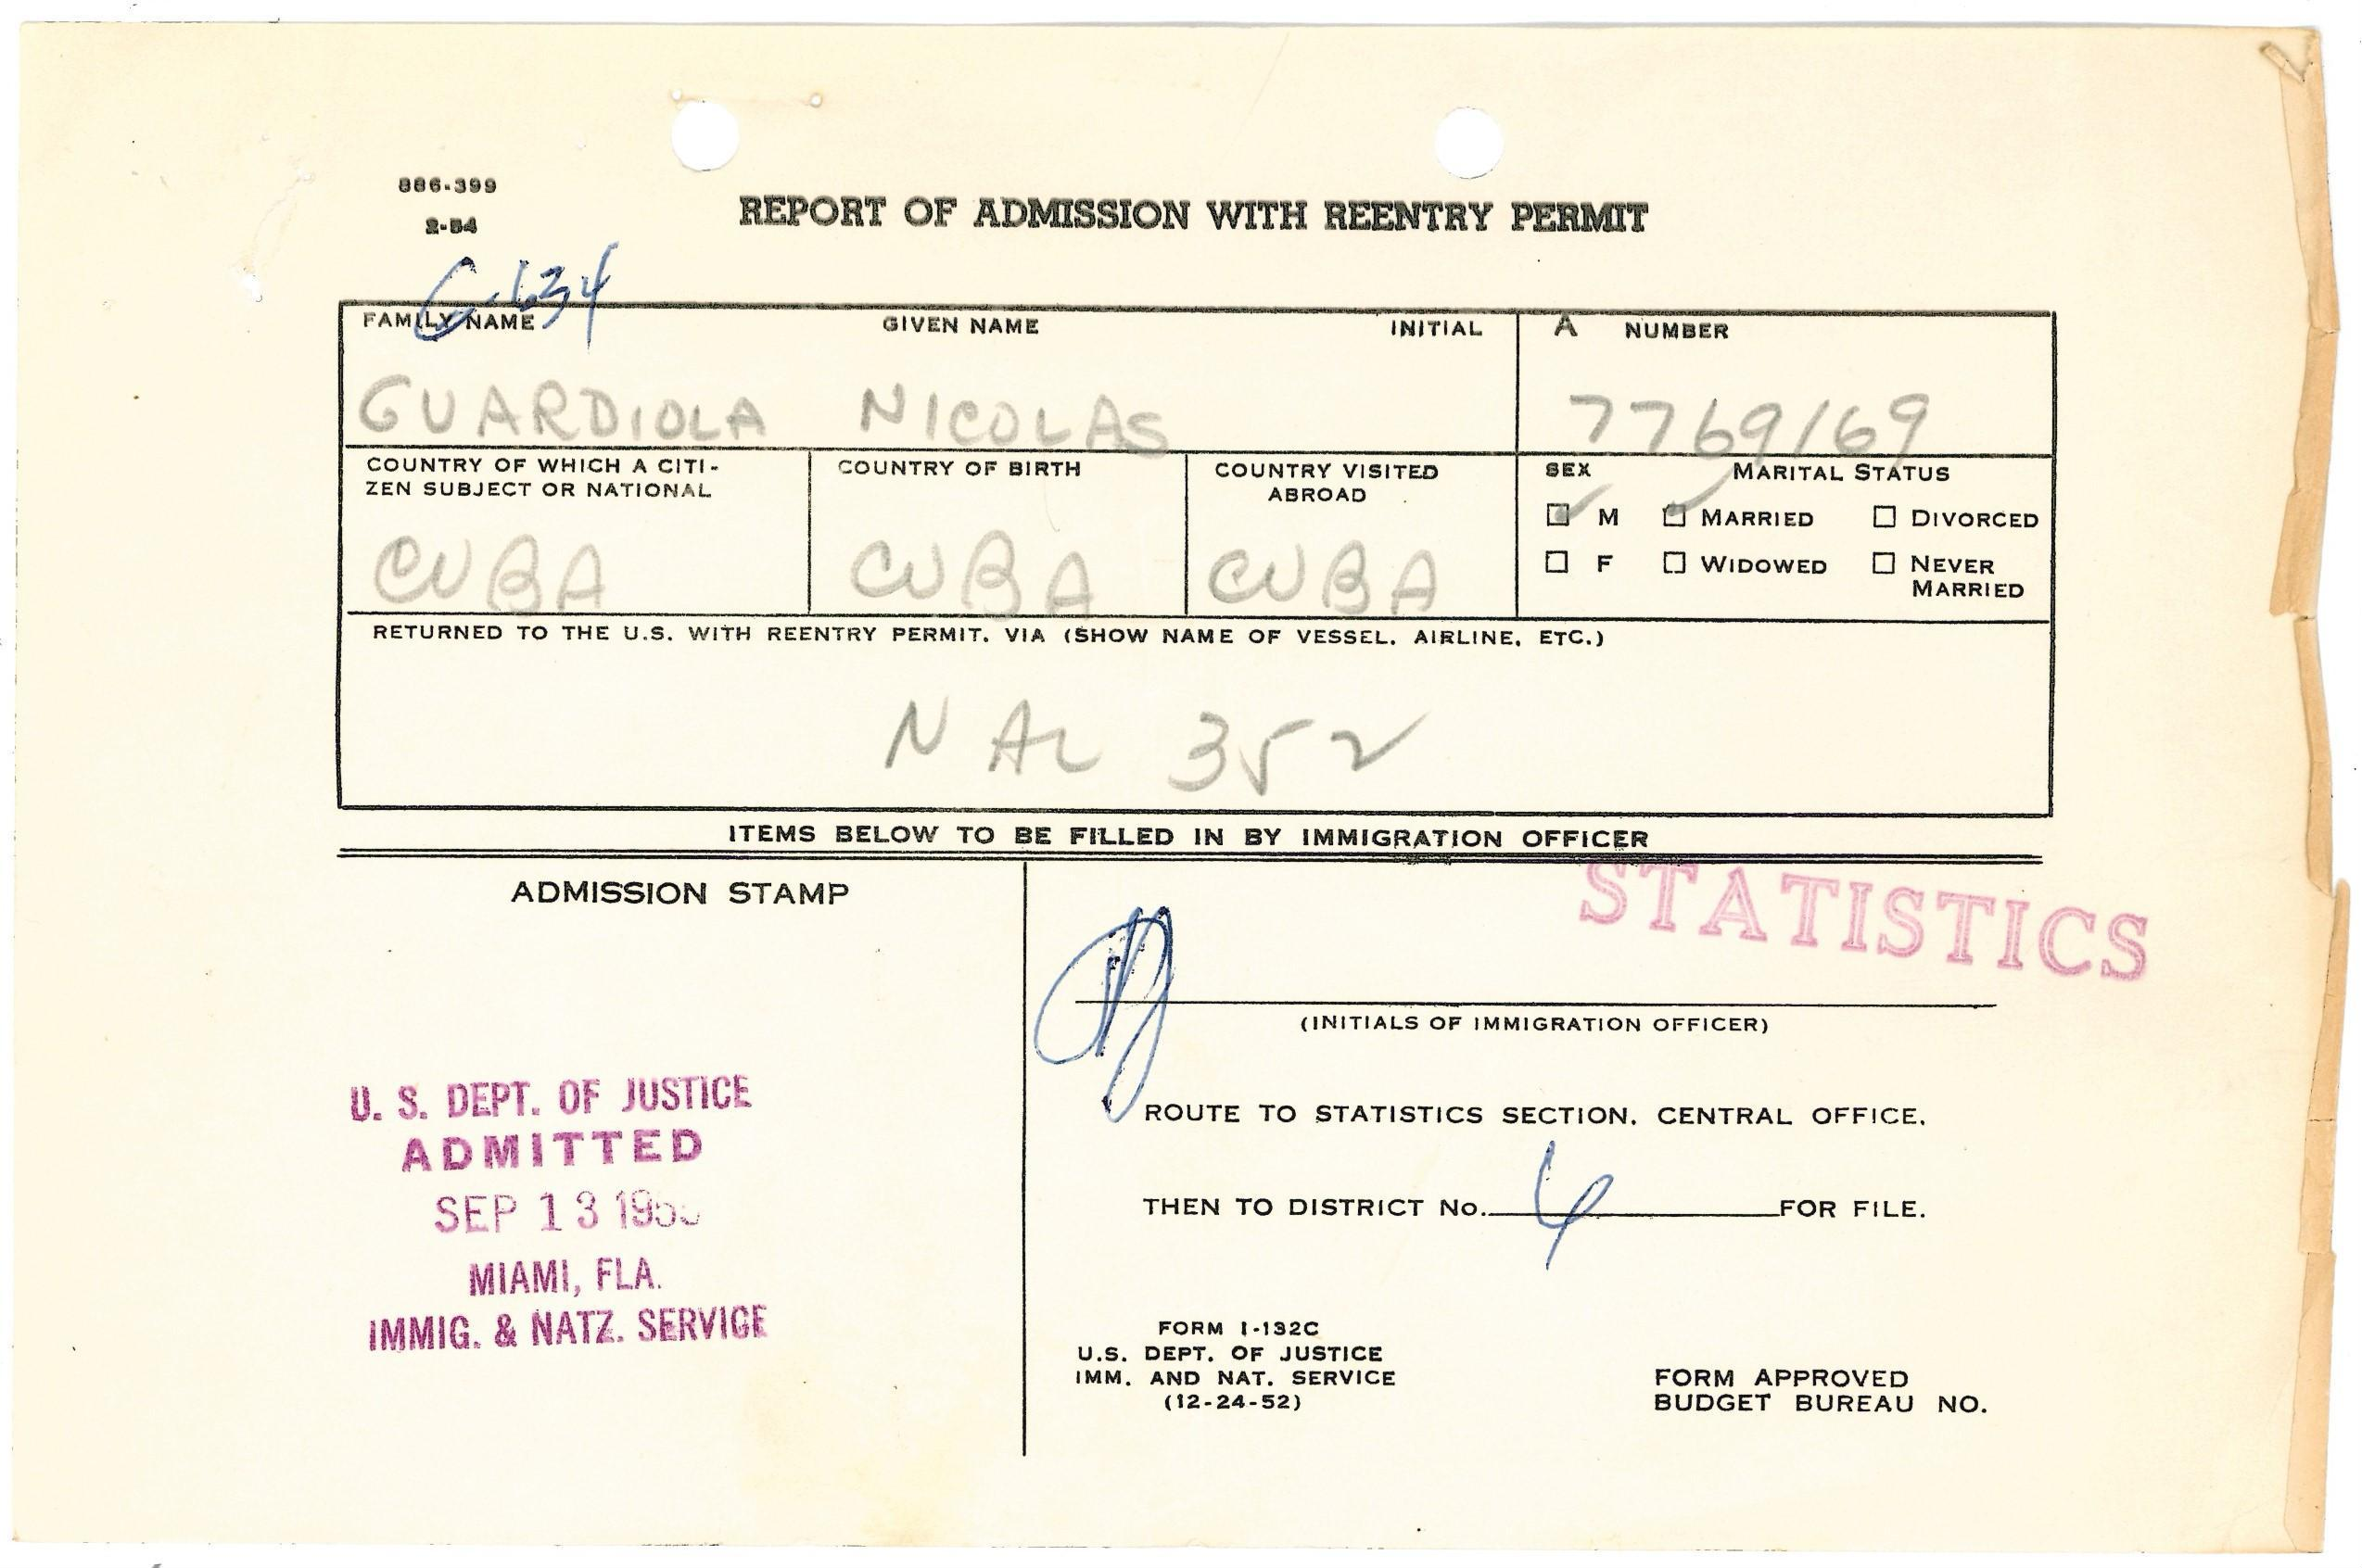 886-399
2-54
REPORT OF ADMISSION WITH REENTRY PERMIT
G-634
FAMILY NAME GIVEN NAME INITIAL A NUMBER
GUARDIOLA NICOLAS 7769169
COUNTRY OF WHICH A CITI-
ZEN SUBJECT OR NATIONAL
CUBA
COUNTRY OF BIRTH
CUBA
COUNTRY VISITED
ABROAD
CUBA
SEX MARITAL STATUS
☑ M ☑ MARRIED ☐ DIVORCED
☐ F ☐ WIDOWED ☐ NEVER
MARRIED
RETURNED TO THE U.S. WITH REENTRY PERMIT. VIA (SHOW NAME OF VESSEL. AIRLINE. ETC.)
NAL 352
ITEMS BELOW TO BE FILLED IN BY IMMIGRATION OFFICER
ADMISSION STAMP
U. S. DEPT. OF JUSTICE
ADMITTED
SEP 13
MIAMI, FLA.
IMMIG. & NATZ. SERVICE
STATISTICS
(INITIALS OF IMMIGRATION OFFICER)
ROUTE TO STATISTICS SECTION. CENTRAL OFFICE.
THEN TO DISTRICT No. 6 FOR FILE.
FORM I-132C
U.S. DEPT. OF JUSTICE
IMM. AND NAT. SERVICE
(12-24-52)
FORM APPROVED
BUDGET BUREAU NO.